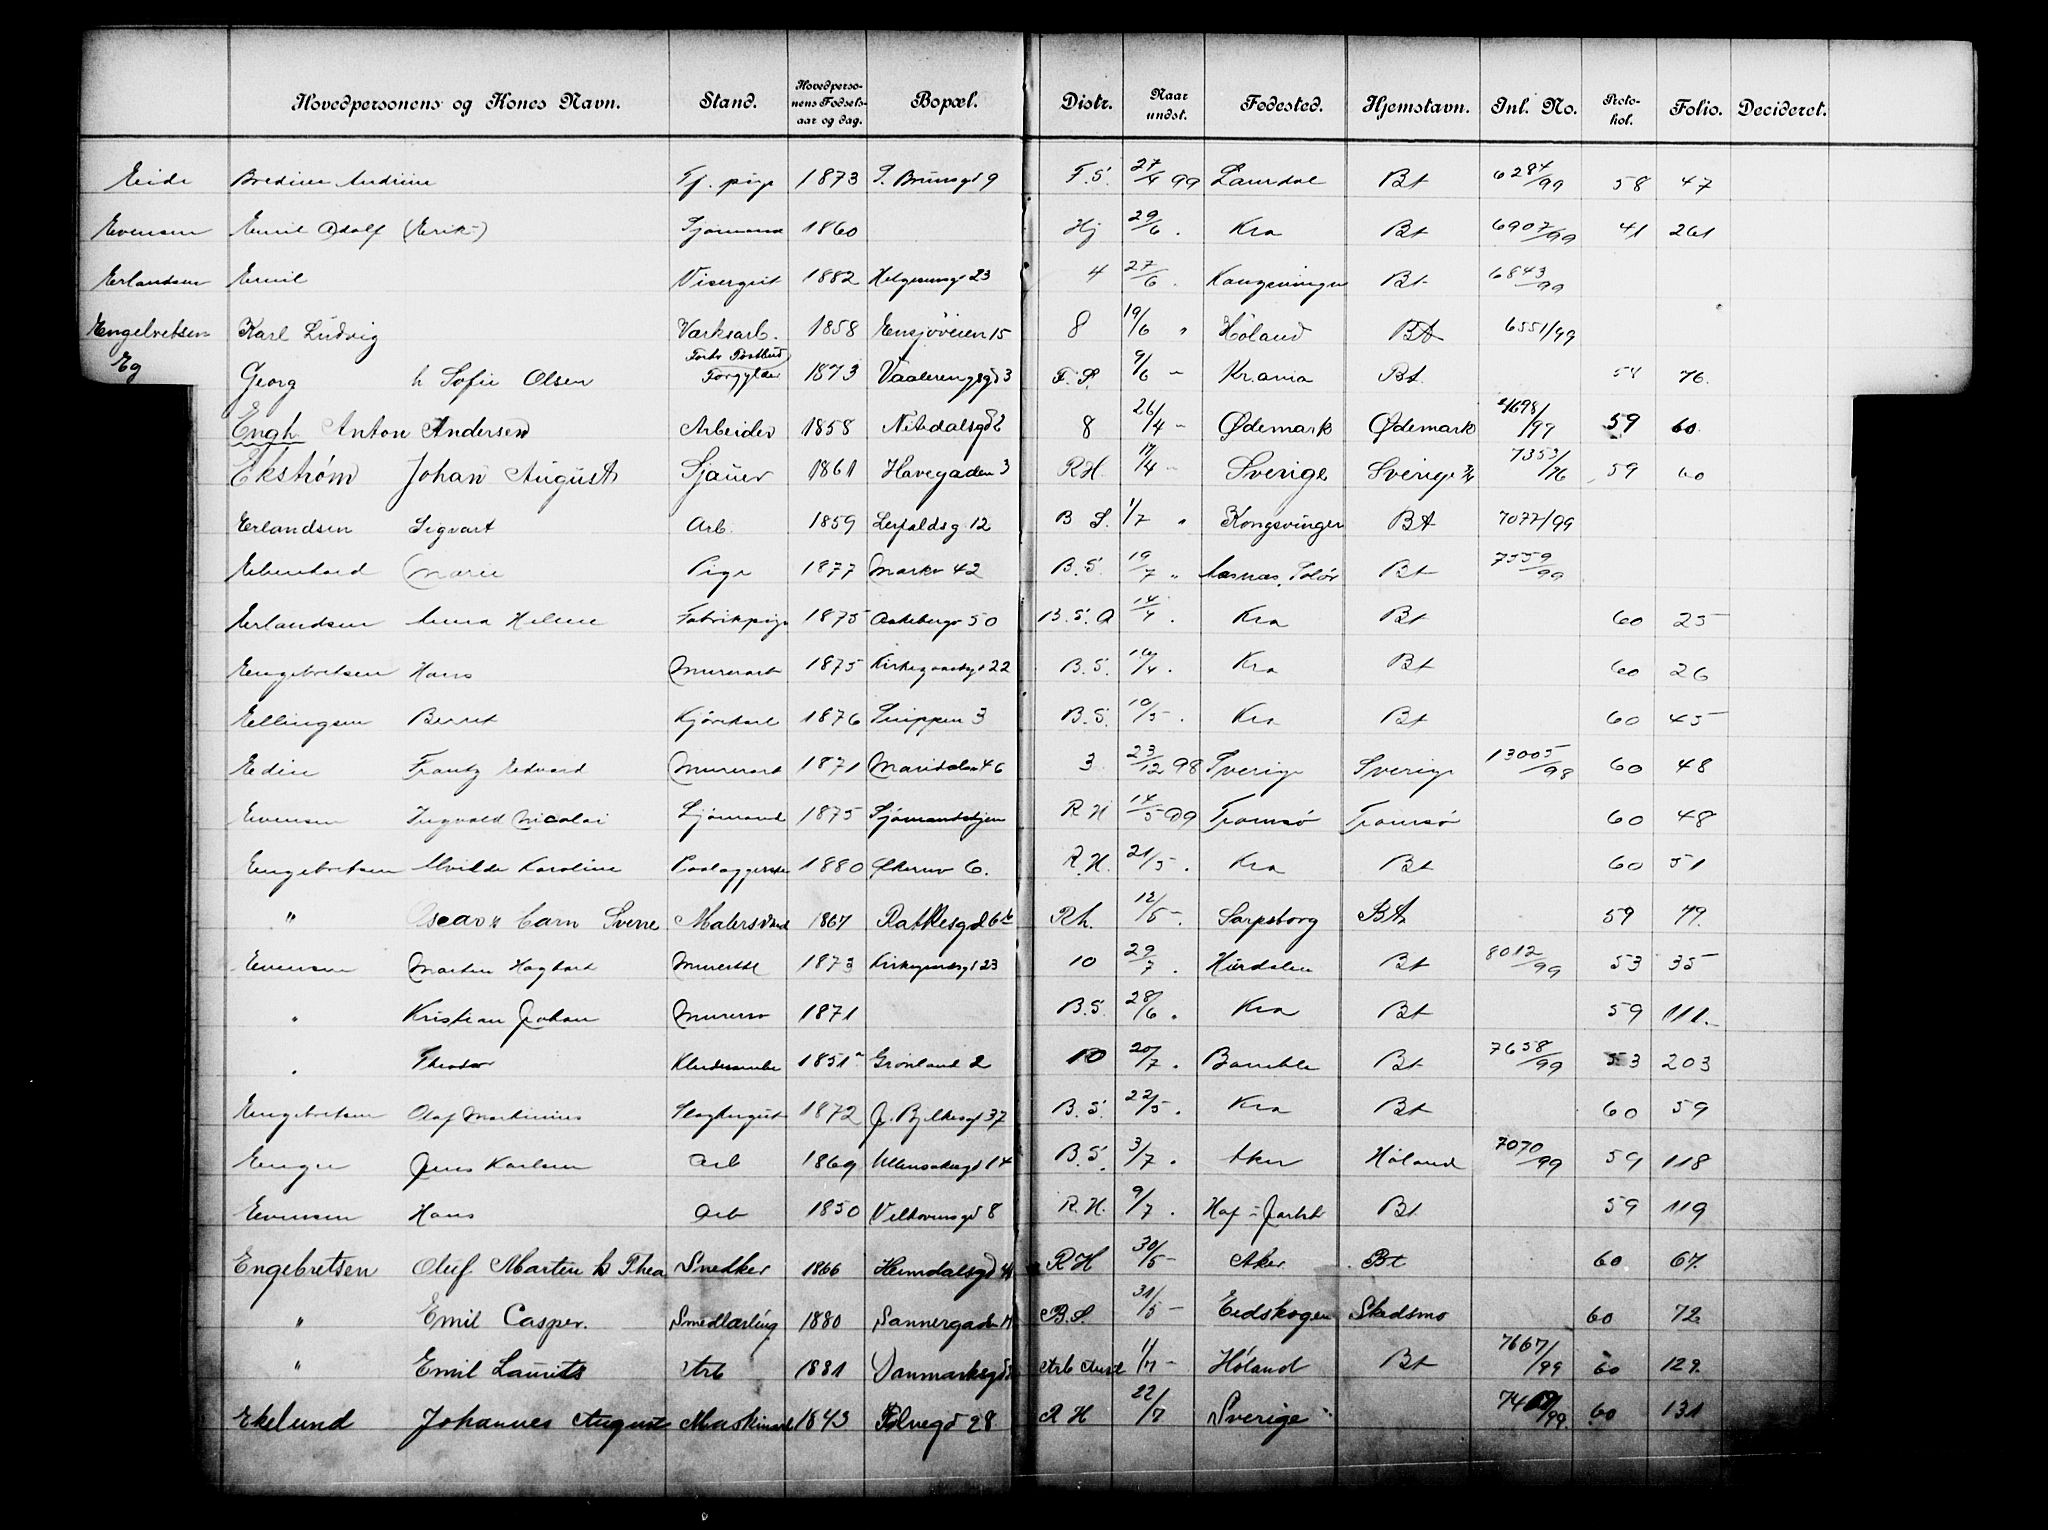 Hovedpersonens og Kones Navn. Stand. Hovedpersonens Fødselsaar og dag. Bopæl. Distr. Naar undst. Fødested. Hjemstavn. Inl. No. Protokol. Folio. Decideret.
Eide Bredine Andrine Tj. pige 1873 T. Brunsgd 9 F.S. 27/4 99 Bt 6284/99 58 47
Evensen Emil Adolf (Erik-) Sjømand 1860 Hj 29/6 . Kra Bt 6907/99 41 261
Erlandsen Emil Visergut 1882 Helgesensgt 23 4 27/6 . Kongsvinger Bt 6843/99
Engebretsen Karl Ludvig Værksarb. 1858 Ensjøveien 15 8 19/6 " Høland Bt 6551/99
Eg Georg h Sofie Olsen Forgylder 1873 Vaalerenggd 3 F.S. 9/6 " Kr.ania Bt. 54 76.
Engh Anton Andersen Arbeider 1858 Nitedalsgd 2 8 26/4 - Ødemark Ødemark 4698/99 59 60.
Ekstrøm Johan August Sjauer 1861 Havegaden 3 R.H. 17/4 - Sverige Sverige 7353/76 59 60
Erlandsen Sigvart Arb. 1859 Lerfaldsg 12 B S. 1/7 " Kongsvinger Bt 7077/99
Marie Pige 1877 Markv 42 B.S. 19/7 " Aasnæs, Solør Bt 7559/99
Erlandsen Anna Helene Fabrikpige 1875 Akebergv 50 B.S.A 14/4 . Kra Bt 60 25
Engebretsen Hans Murerarb 1875 Kirkegaardsgt 22 B.S. 16/4 . Kra Bt 60 26
Ellingsen Berret Kjørekarl 1876 Snippen 3 B.S. 10/5 . Kra Bt 60 45
Edin Frantz Edvard Murerarb 1871 Maridalsv 46 3 23/12 98 Sverige Sverige 13005/98 60 48
Evensen Ingvald Nicolai Sjømand 1875 Sjømandshjem R H 14/5 99 Tromsø Tromsø 60 48
Engebretsen Alvilde Karoline Paalæggerske 1880 Økernv 6. R.H. 21/5 . Kra Bt 60 51
" Oscar h Carn Svene Malersvend 1867 Rathkesgd 6 Rh. 12/5 - Sarpsborg Bt 59 79.
Evensen Martin Hagbart 1873 23 10 29/7 . Hurdalen Bt 8012/99 53 35
" Kristian Johan Murersv 1871 B.S. 28/6 . Kra Bt 59 111.
" Theodor Kludesamler 1851 Grønland 2 10 20/7 . Bamble Bt 7658/99 53 203
Engebretsen Olaf Martinius Slagtergut 1872 J. Bjelkesgt 37 B.S. 22/5 . Kra Bt 60 59
Enger Jens Karlsen Arb 1869 Ullensakergd 14 B.S. 3/7 . Aker Høland 7070/99 59 118
Evensen Hans Arb 1850 8 R.H. 9/7 . Bt 59 119
Engebretsen Oluf Martin h Thea Snedker 1866 Heimdalsgd R H 30/5 - Aker Bt 60 67.
" Emil Casper. Smedlærling 1880 Sannergaden B.S. 31/5 - Eidskogen Skedsmo 60 72
" Emil Laurits Arb 1881 Danmarksgd Arb Anst 1/7 - Høland Bt 7667/99 60 129.
Ekelund Johannes August Maskinarb 1843 Tolvegd 28 R H 22/7 Sverige 60 131